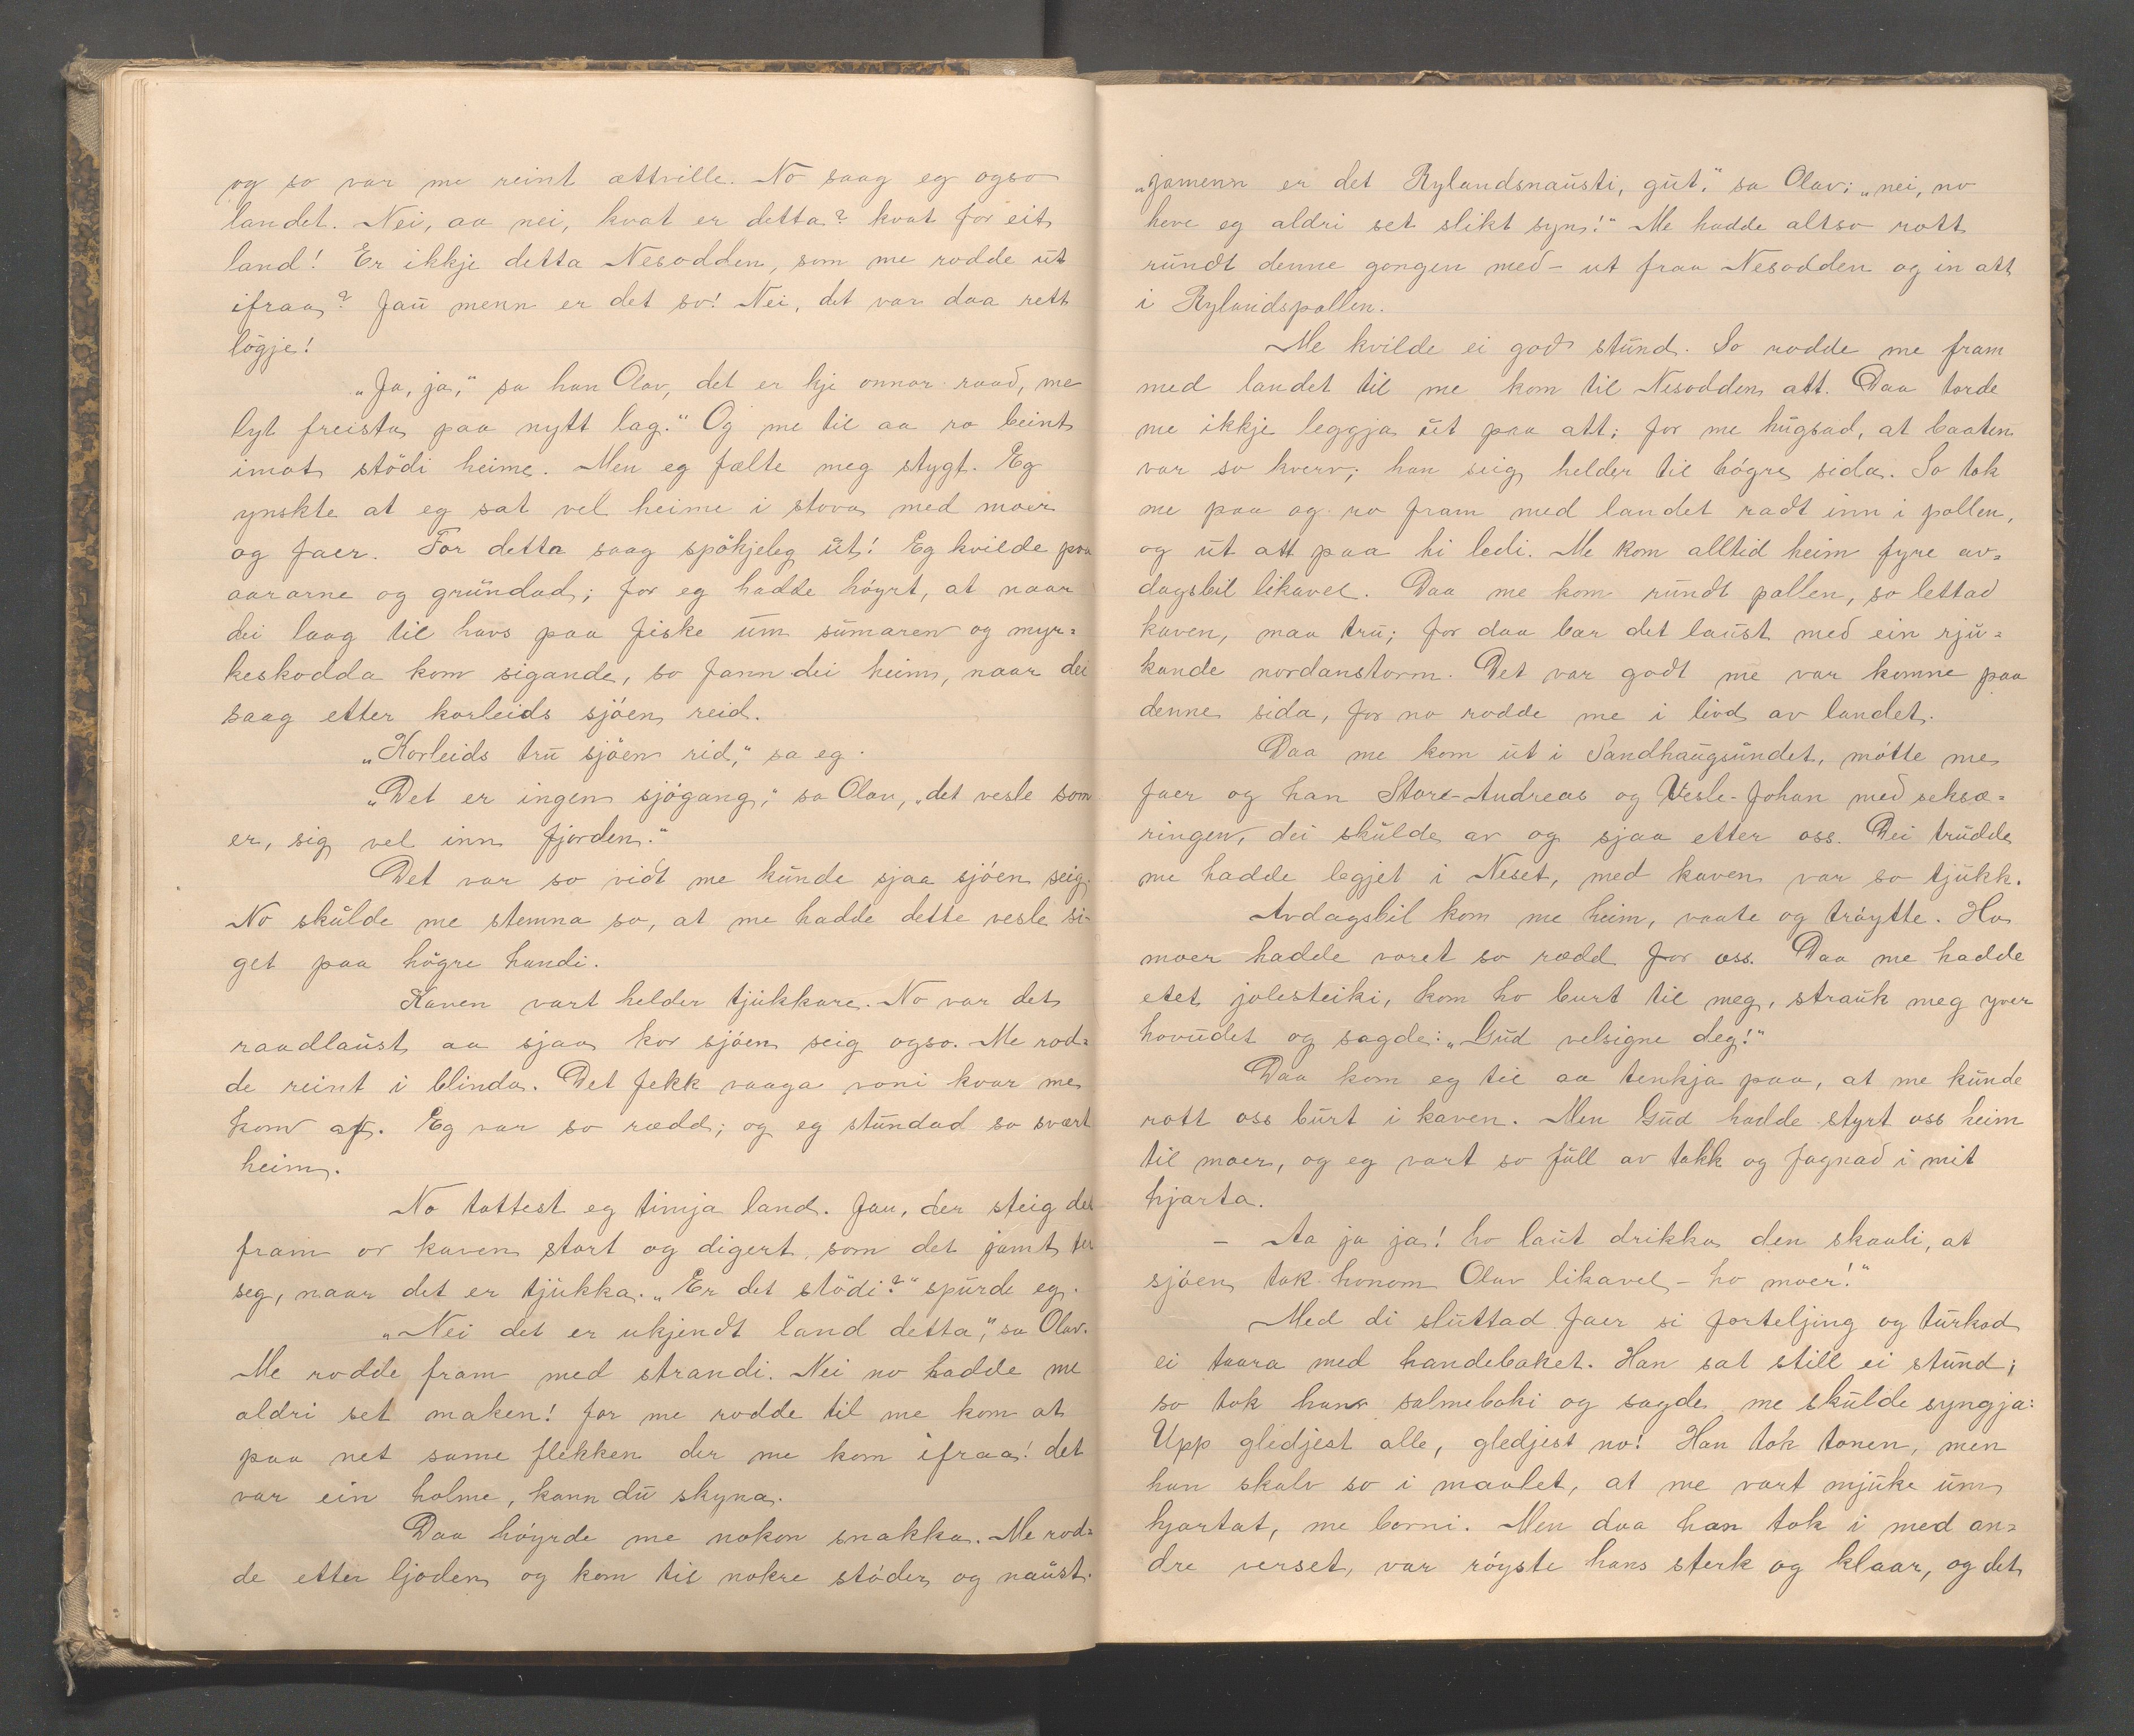 og so var me reint ættville. No saag eg ogso
landet. Nei, aa nei, kvat er detta? kvat for eit
land! Er ikkje detta Nesodden, som me rodde ut
ifraa? Jau menn er det so! Nei, det var daa rett
lögje!
„Ja, ja,“ sa han Olav, det er kje onnor raad, me
lyt freista paa nytt lag.“ Og me til aa ro beint
imot stödi heime. Men eg fælte meg stygt. Eg
ynskte at eg sat vel heime i stova med moer
og faer. For detta saag spökjeleg ut! Eg kvilde paa
aararne og grundad; for eg hadde höyrt, at naar
dei laag til havs paa fiske um sumaren og myr=
keskodda kom sigande, so fann dei heim, naar dei
saag etter korleids sjöen reid.
„Korleids tru sjöen rid,“ sa eg.
„Det er ingen sjögang,“ sa Olav, „det vesle som
er, sig vel inn fjorden.“
Det var so vidt me kunde sjaa sjöen seig.
No skulde me stemna so, at me hadde dette vesle si-
get paa högre handi.
Kaven vart helder tjukkare. No var det
raadlaust aa sjaa kor sjöen seig ogso. Me rod=
de reint i blinda. Det fekk vaaga voni kvar me
kom att. Eg var so rædd; og eg stundad so svært
heim.
No tottest eg timja land. Jau, der steig det
fram or kaven stort og digert, som det jamt ter
seg, naar det er tjukka. „Er det stödi?“ spurde eg.
„Nei det er ukjendt land detta“, sa Olav.
Me rodde fram med strandi. Nei no hadde me
aldri set maken! for me rodde til me kom at
paa net same flekken der me kom ifraa! det
var ein holme, kann du skyna.
Daa höyrde me nokon snakka. Me rod=
de etter ljoden og kom til nokre stöder og naust.
„Jamenn er det Rylandsnausti, gut,“ sa Olav; „nei, no
heve eg aldri set slikt syn!“ Me hadde altso rott
rundt denne gongen med – ut fraa Nesodden og in att
i Rylandspollen.
Me kvilde ei god stund. So rodde me fram
med landet til me kom til Nesodden att. Daa torde
me ikkje leggja ut paa att; for me hugsad, at baaten
var so kverv; han seig helder til högre sida. So tok
me paa og ro fram med landet radt inn i pollen,
og ut att paa hi ledi. Me kom alltid heim fyre av=
dagsbil likavel. Daa me kom rundt pollen, so lettad
kaven, maa tru; for daa bar det laust med ein rju=
kande nordanstorm. Det var godt me var komne paa
denne sida, for no rodde me i livd av landet.
Daa me kom ut i Sandhaugsundet, mötte me
faer og han Store-Andreas og Vesle-Johan med seksæ=
ringen, dei skulde av og sjaa etter oss. Dei trudde
me hadde legjet i Neset, med kaven var so tjukk.
Avdagsbil kom me heim, vaate og tröytte. Ho
moer hadde voret so rædd for oss. Daa me hadde
etet jolesteiki, kom ho burt til meg, strauk meg yver
hovudet og sagde: „Gud velsigne deg!“
Daa kom eg til aa tenkja paa, at me kunde
rott oss burt i kaven. Men Gud hadde styrt oss heim
til moer, og eg vart so full av takk og fagnad i mit
hjarta.
– Aa ja ja! ho laut drikka den skaali, at
sjöen tok honom Olav likavel – ho moer!“
Med di sluttad faer si forteljing og turkad
ei taara med handebaket. Han sat still ei stund;
so tok han salmeboki og sagde me skulde syngja:
Upp gledjest alle, gledjest no! Han tok tonen, men
han skalv so i maalet, at me vart mjuke um
hjartat, me borni. Men daa han tok i med an=
dre verset, var röyste hans sterk og klaar, og det